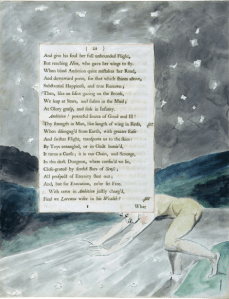 And give his soul her full unbounded Flight,
But reaching Him, who gave her wings to fly.
When blind Ambition quite mistakes her Road,
And downward pores, for that which shines above,
Substantial Happiness, and true Renown;
Then, like an Idiot gazing on the Brook,
We leap at Stars, and fasten in the Mud;
At Glory grasp, and sink in Infamy.
Ambition! powerful Source of Good and Ill!
Thy strength in Man, like length of wing in Birds,
When disingag'd from Earth, with greater Ease
And swifter Flight, transports us to the skies:
By Toys entangled, or in Guilt bemir'd,
It turns a Curse; it is our Chain, and Scourge,
In this dark Dungeon, where confin'd we lie,
Close-grated by the sordid Bars of Sense;
All prospect of Eternity shut out;
And, but for Execution, ne'er set free.
With error in Ambition justly charg'd,
Find we Lorenzo wiser in his Wealth?
What